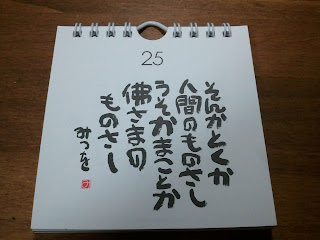 25
そんかとくか
人間のものさし
うそかまことか
佛さまの
ものさし
みつを